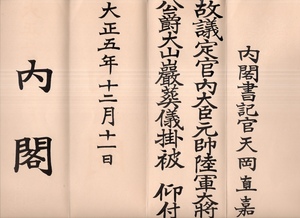 内閣書記官天岡直嘉
故議定官内大臣元帥陸軍大将
公爵大山巌葬儀掛被 仰付
大正五年十二月十一日
内閣